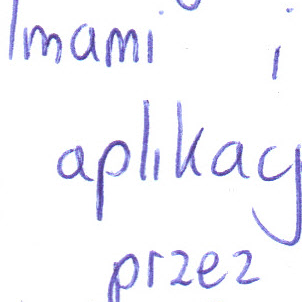 imami i
aplikacj
przez